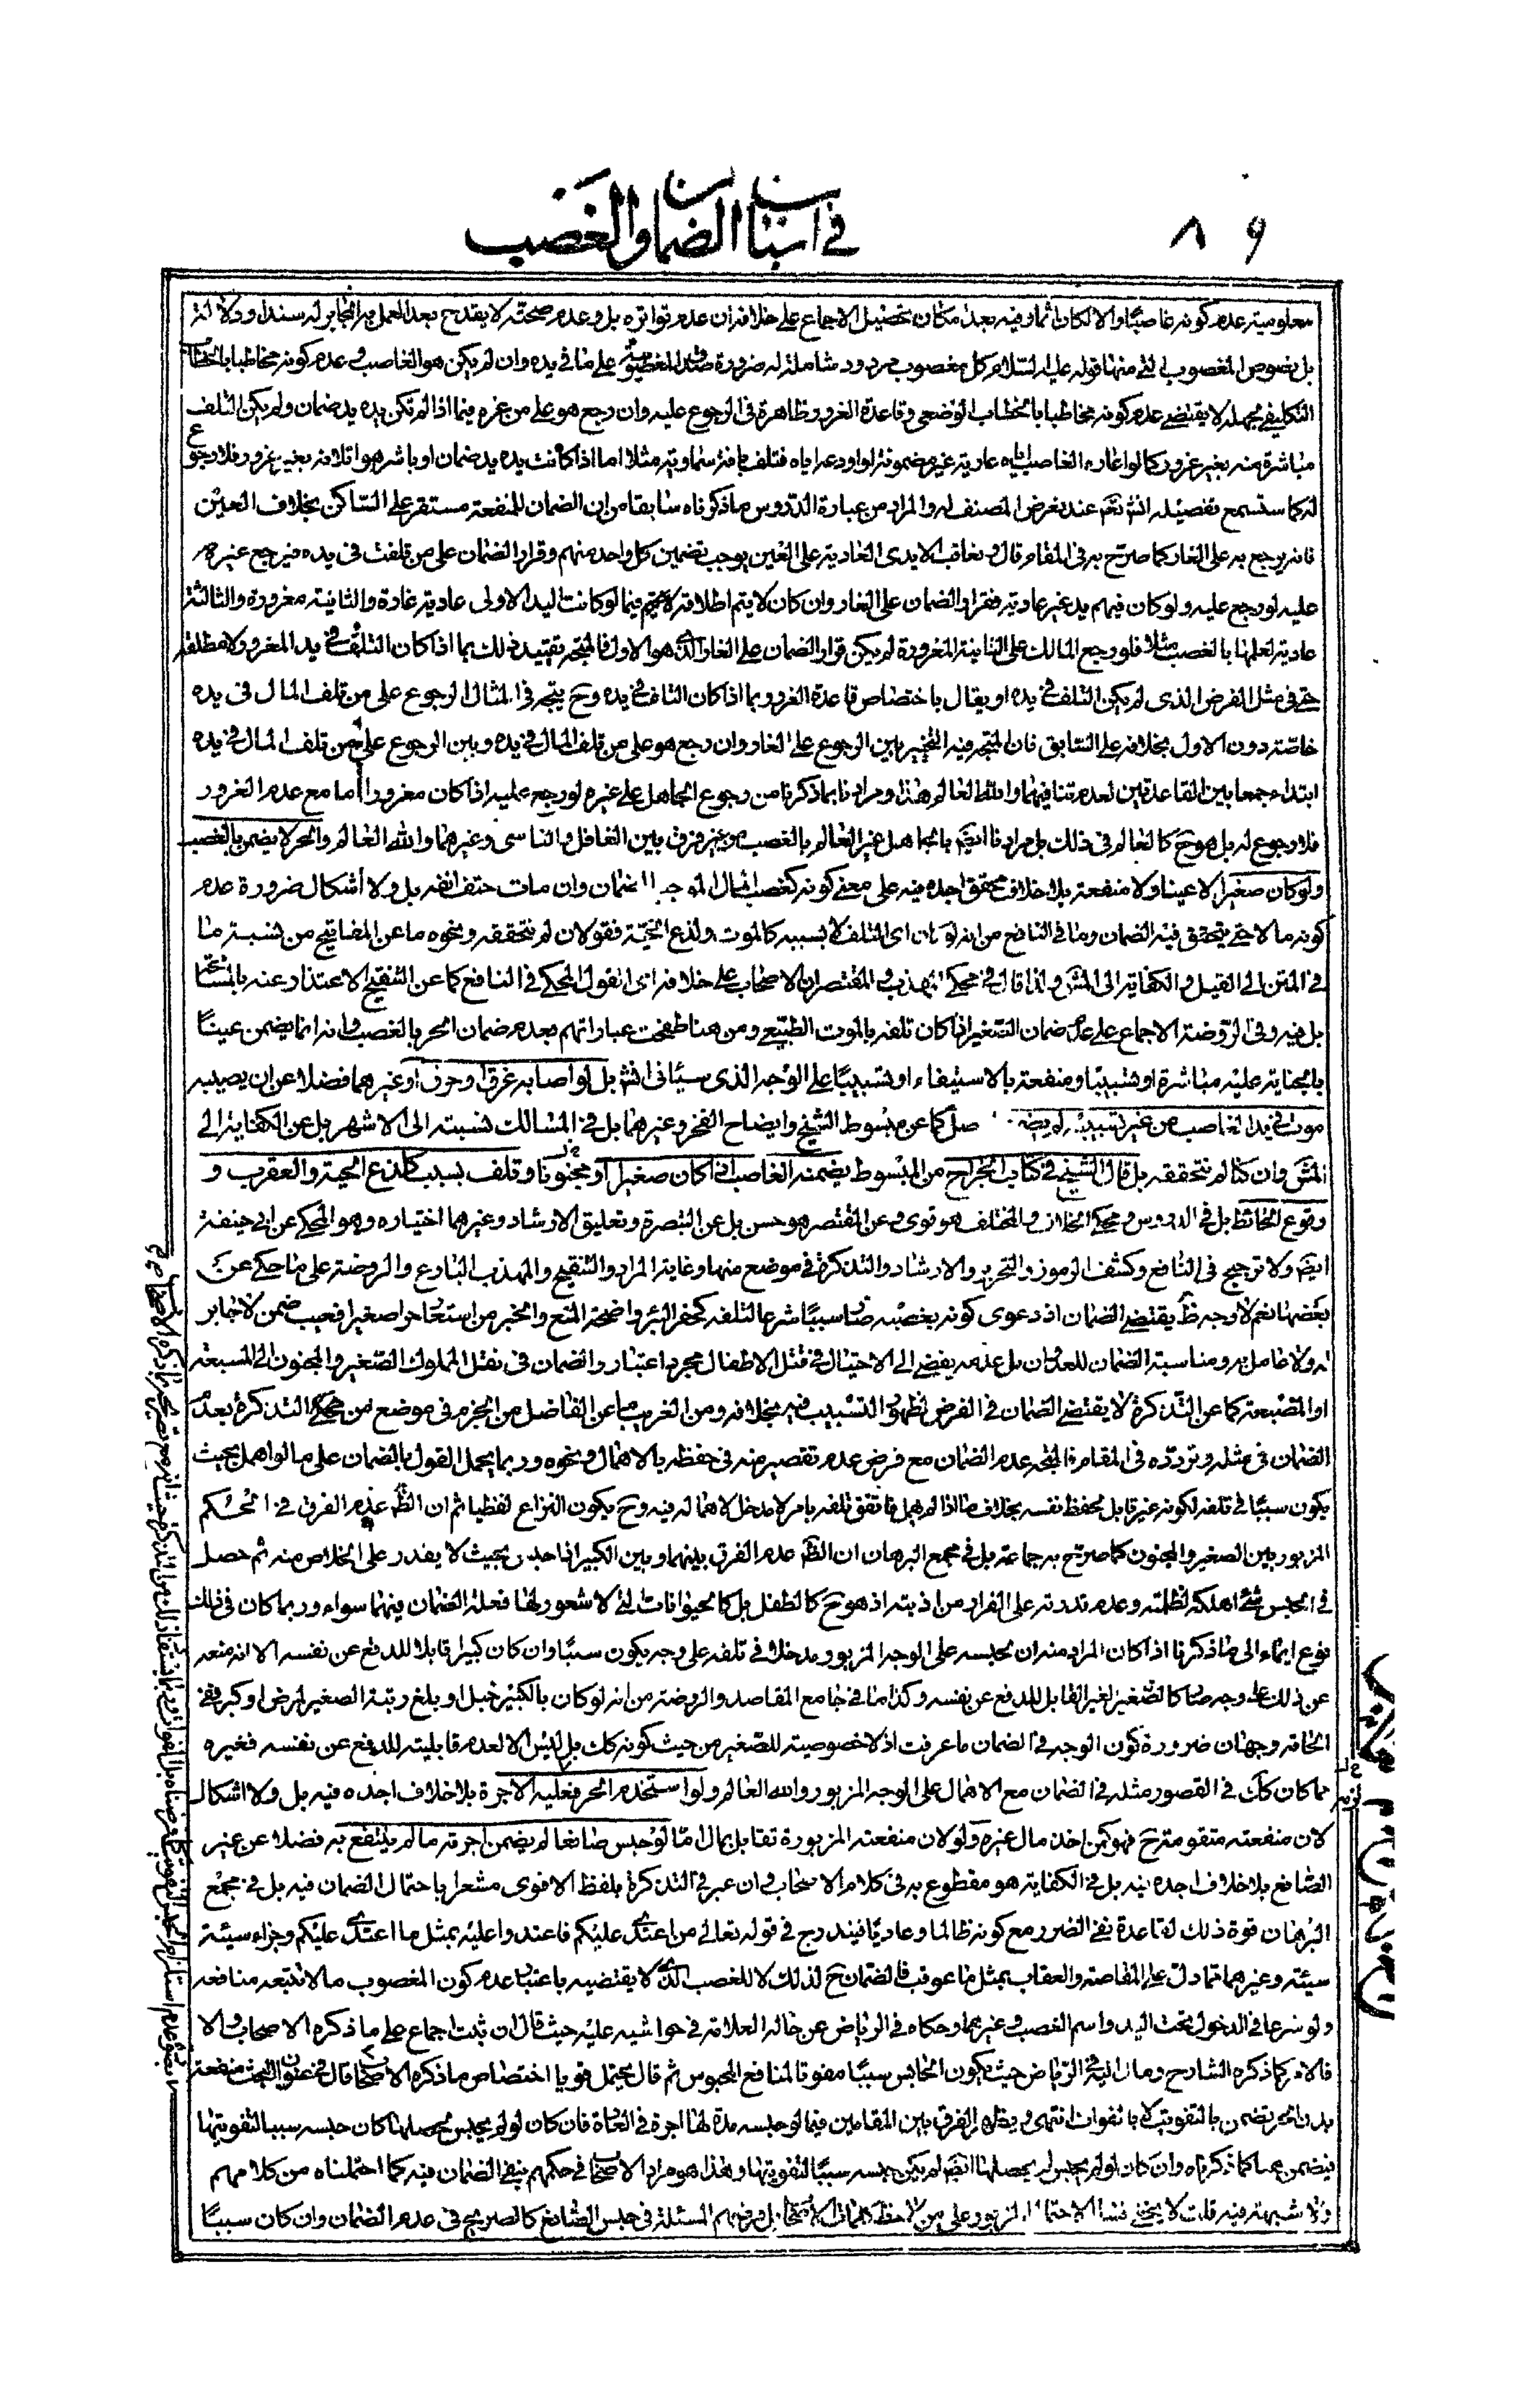 في اسباب الضمان والغصب
٨٩
معلومية عدم كونه غاصبا والا لكان اثما وفيه بعد امكان تحصيل الاجماع على خلافه ان عدم تواتره بل وعدم صحته لا يقدح بعد العمل به الجابر له سندا ودلالة
بل نصوص المغصوب التي منها قوله عليه السلام كل مغصوب مردود شاملة له ضرورة صدق المغصوبية على ما في يده وان لم يكن هو الغاصب وعدم كونه مخاطبا بالخطاب
التكليفي لجهله لا يقتضي عدم كونه مخاطبا بالخطاب الوضعي وقاعدة الغرور ظاهرة في الرجوع عليه وان رجع هو على من غره فيما اذا لم تكن يده يد ضمان ولم يكن التلف
مباشرة منه بغير غرور كما لو اعاره الغاصب اياه عارية غير مضمونة او اودعه اياه فتلف بافة سماوية مثلا اما اذا كانت يده يد ضمان او باشر هو اتلافه بغير غرور فلا رجوع
له كما ستسمع تفصيله انش تعم عند تعرض المصنف له والمراد من عبارة الدروس ما ذكرناه سابقا من ان الضمان للمنفعة مستقر على الساكن بخلاف العين
فانه يرجع به على الغار كما صرح به في المقام قال وتعاقب الايدي العادية على العين يوجب تضمين كل واحد منهم وقرار الضمان على من تلفت في يده فيرجع غيره
عليه لو رجع عليه ولو كان فيهم يد غير عادية فقرار الضمان على الغار وان كان لا يتم اطلاقه فيما لو كانت اليد الاولى عادية غارة والثانية مغرورة والثالثة
عادية لعلمها بالغصب مثلا فلو رجع المالك على الثانية المغرورة لم يكن قرار الضمان على الغار الذي هو الاول فالمتجه تقييد ذلك بما اذا كان التلف في يد المغرور لا مطلقا
حتى في مثل الفرض الذي لم يكن التلف في يده او يقال باختصاص قاعدة الغرور بما اذا كان التلف في يده وح يتجه في المثال الرجوع على من تلف المال في يده
خاصة دون الاول بخلافه على السابق فان المتجه فيه التخيير بين الرجوع على الغار وان رجع هو على من تلف المال في يده وبين الرجوع على من تلف المال في يده
ابتداء جمعا بين القاعدتين لعدم تنافيهما والله العالم هذا ومرادنا بما ذكرنا من رجوع الجاهل على غيره لو رجع عليه اذا كان مغرورا اما مع عدم الغرور
فلا رجوع له بل هو ح كالعالم في ذلك بل مرادنا ايضا بالجاهل غير العالم بالغصب من غير فرق بين الغافل والناسي وغيرهما والله العالم والحر لا يضمن بالغصب
ولو كان صغيرا لا عينا ولا منفعة بلا خلاف محقق اجده فيه على معنى كونه كغصب المال الموجب للضمان وان مات حتف انفه بل ولا اشكال ضرورة عدم
كونه مالا حتى يتحقق فيه الضمان وما في النافع من انه لو كان اي التلف لا بسببه كالموت ولذع الحية فقولان لم نتحققه ونحوه ما عن المفاتيح من نسبة ما
في المتن الى القيل والكفاية الى المش ولذا قال في محكي المهذب والمقتصر ان الاصحاب على خلافه اي القول المحكي في النافع كما عن التنقيح الاعتذار عنه بالمسامحة
بل فيه وفي الروضة الاجماع على عدم ضمان الصغير اذا كان تلفه بالموت الطبيعي ومن هنا طفحت عباراتهم بعدم ضمان الحر بالغصب وانه انما يضمن عينا
بالجناية عليه مباشرة او تسبيبا ومنفعة بالاستيفاء او تسبيبا على الوجه الذي سيأتي انش بل لو اصابه غرق او حرق او غيرهما فضلا عن ان يصيبه
موت في يد الغاصب من غير تسبيبه لم يضمنه كما عن مبسوط الشيخ وايضاح الفخر وغيرهما بل في المسالك نسبته الى الاشهر بل عن الكفاية الى
المش وان كنا لم نتحققه بل قال الشيخ في كتاب الجراح من المبسوط يضمنه الغاصب اذا كان صغيرا او مجنونا وتلف بسبب كلذع الحية والعقرب و
وقوع الحائط بل في الدروس ومحكي الخلاف والمختلف هو قوي وعن المقتصر هو حسن بل عن التبصرة وتعليق الارشاد وغيرهما اختياره وهو المحكي عن ابي حنيفة
ايضا ولا ترجيح في النافع وكشف الرموز والتحرير والارشاد والتذكرة في موضع منها وغاية المراد والتنقيح والمهذب البارع والروضة على ما حكي عن
بعضها نعم لا وجه ظ يقتضي الضمان اذ دعوى كونه بغصبه صار سببا شرعا لتلفه كحفر البئر واضحة المنع والخبر من استعار حرا صغيرا فعيب ضمن لا جابر
له ولا عامل به ومناسبة الضمان للعدوان بل عدمه يفضي الى الاحتيال في قتل الاطفال مجرد اعتبار والضمان في نقل المملوك الصغير والمجنون الى المسبعة
او المضيعة كما عن التذكرة لا يقتضي الضمان في الفرض لظهور التسبيب فيه بخلافه ومن الغريب ما عن الفاضل من الجزم في موضع من محكي التذكرة بعدم
الضمان في مثله وتردده في المقام فالمتجه عدم الضمان مع فرض عدم تقصير منه في حفظه بالاهمال ونحوه وربما يحمل القول بالضمان على ما لو اهمل بحيث
يكون سببا في تلفه لكونه غير قابل لحفظ نفسه بخلاف ما اذا لم يهمل فاتفق تلفه بامر لا مدخل لاهماله فيه وح يكون النزاع لفظيا ثم ان الظ عدم الفرق في الحكم
المزبور بين الصغير والمجنون كما صرح به جماعة بل في مجمع البرهان ان الظ عدم الفرق بينهما وبين الكبير اذا حبس بحيث لا يقدر على الخلاص منه ثم حصل
في الحبس شئ اهلكه لظلمه وعدم قدرته على الفرار من اذيته اذ هو ح كالطفل بل كالحيوانات التي لا شعور لها فعلة الضمان فيهما سواء وربما كان في ذلك
نوع ايماء الى ما ذكرنا اذا كان المراد منه ان لحبسه على الوجه المزبور مدخلا في تلفه على وجه يكون سببا وان كان كبيرا قابلا للدفع عن نفسه الا انه منعه
عن ذلك على وجه صار كالصغير الغير القابل للدفع عن نفسه وكذا ما في جامع المقاصد والروضة من انه لو كان بالكبير خبل او بلغ رتبة الصغير لمرض او كبر ففي
الحاقه وجهان ضرورة كون الوجه في الضمان ما عرفت اذ لا خصوصية للصغير من حيث كونه كك بل ليس الا لعدم قابليته للدفع عن نفسه فغيره
مما كان كك في القصور مثله في الضمان مع الاهمال على الوجه المزبور والله العالم ولو استخدم الحر فعليه الاجرة بلا خلاف اجده فيه بل ولا اشكال
لان منفعته متقومة ح فهو كمن اخذ مال غيره ولو لان منفعته المزبورة تقابل بمال اما لو حبس صانعا لم يضمن اجرته ما لم ينتفع به فضلا عن غير
الصانع بلا خلاف اجده فيه بل في الكفاية هو مقطوع به في كلام الاصحاب وان عبر في التذكرة بلفظ الاقوى مشعرا باحتمال الضمان فيه بل في مجمع
البرهان قوة ذلك لقاعدة نفي الضرر مع كونه ظالما وعاديا فيندرج في قوله تعالى من اعتدى عليكم فاعتدوا عليه بمثل ما اعتدى عليكم وجزاء سيئة
سيئة وغيرهما مما دل على المقاصة والعقاب بمثل ما عوقب فالضمان ح لذلك لا للغصب الذي لا يقتضيه باعتبار عدم كون المغصوب مالا لتتبعه منافعه
ولو شرعا في الدخول تحت اليد واسم الغصب وغيرهما وحكاه في الرياض عن خاله العلامة في حواشيه عليه حيث قال ان ثبت اجماع على ما ذكره الاصحاب والا
فالامر كما ذكره الشارح ومال اليه في الرياض حيث يكون الحابس سببا مفوتا لمنافع المحبوس ثم قال يحتمل قويا اختصاص ما ذكره الاصحاب قال في عنوان البحث منفعة
بدن الحر تضمن بالتفويت لا بالفوات انتهى ويظهر الفرق بين المقامين فيما لو حبسه مدة لها اجرة في العادة فان كان لو لم يحبس لحصلها كان حبسه سببا لتفويتها
فيضمن هنا كما ذكرناه وان كان لو لم يحبس لم يحصلها ايضا لم يكن حبسه سببا لتفويتها وهذا هو مراد الاصحاب في حكمهم بنفي الضمان فيه كما احتملناه من كلامهم
ولا شبهة فيه قلت لا يخفى فساد الاحتمال المزبور على من لاحظ كلمات الاصحاب بل فرضهم المسئلة في حبس الصانع كالصريح في عدم الضمان وان كان سببا